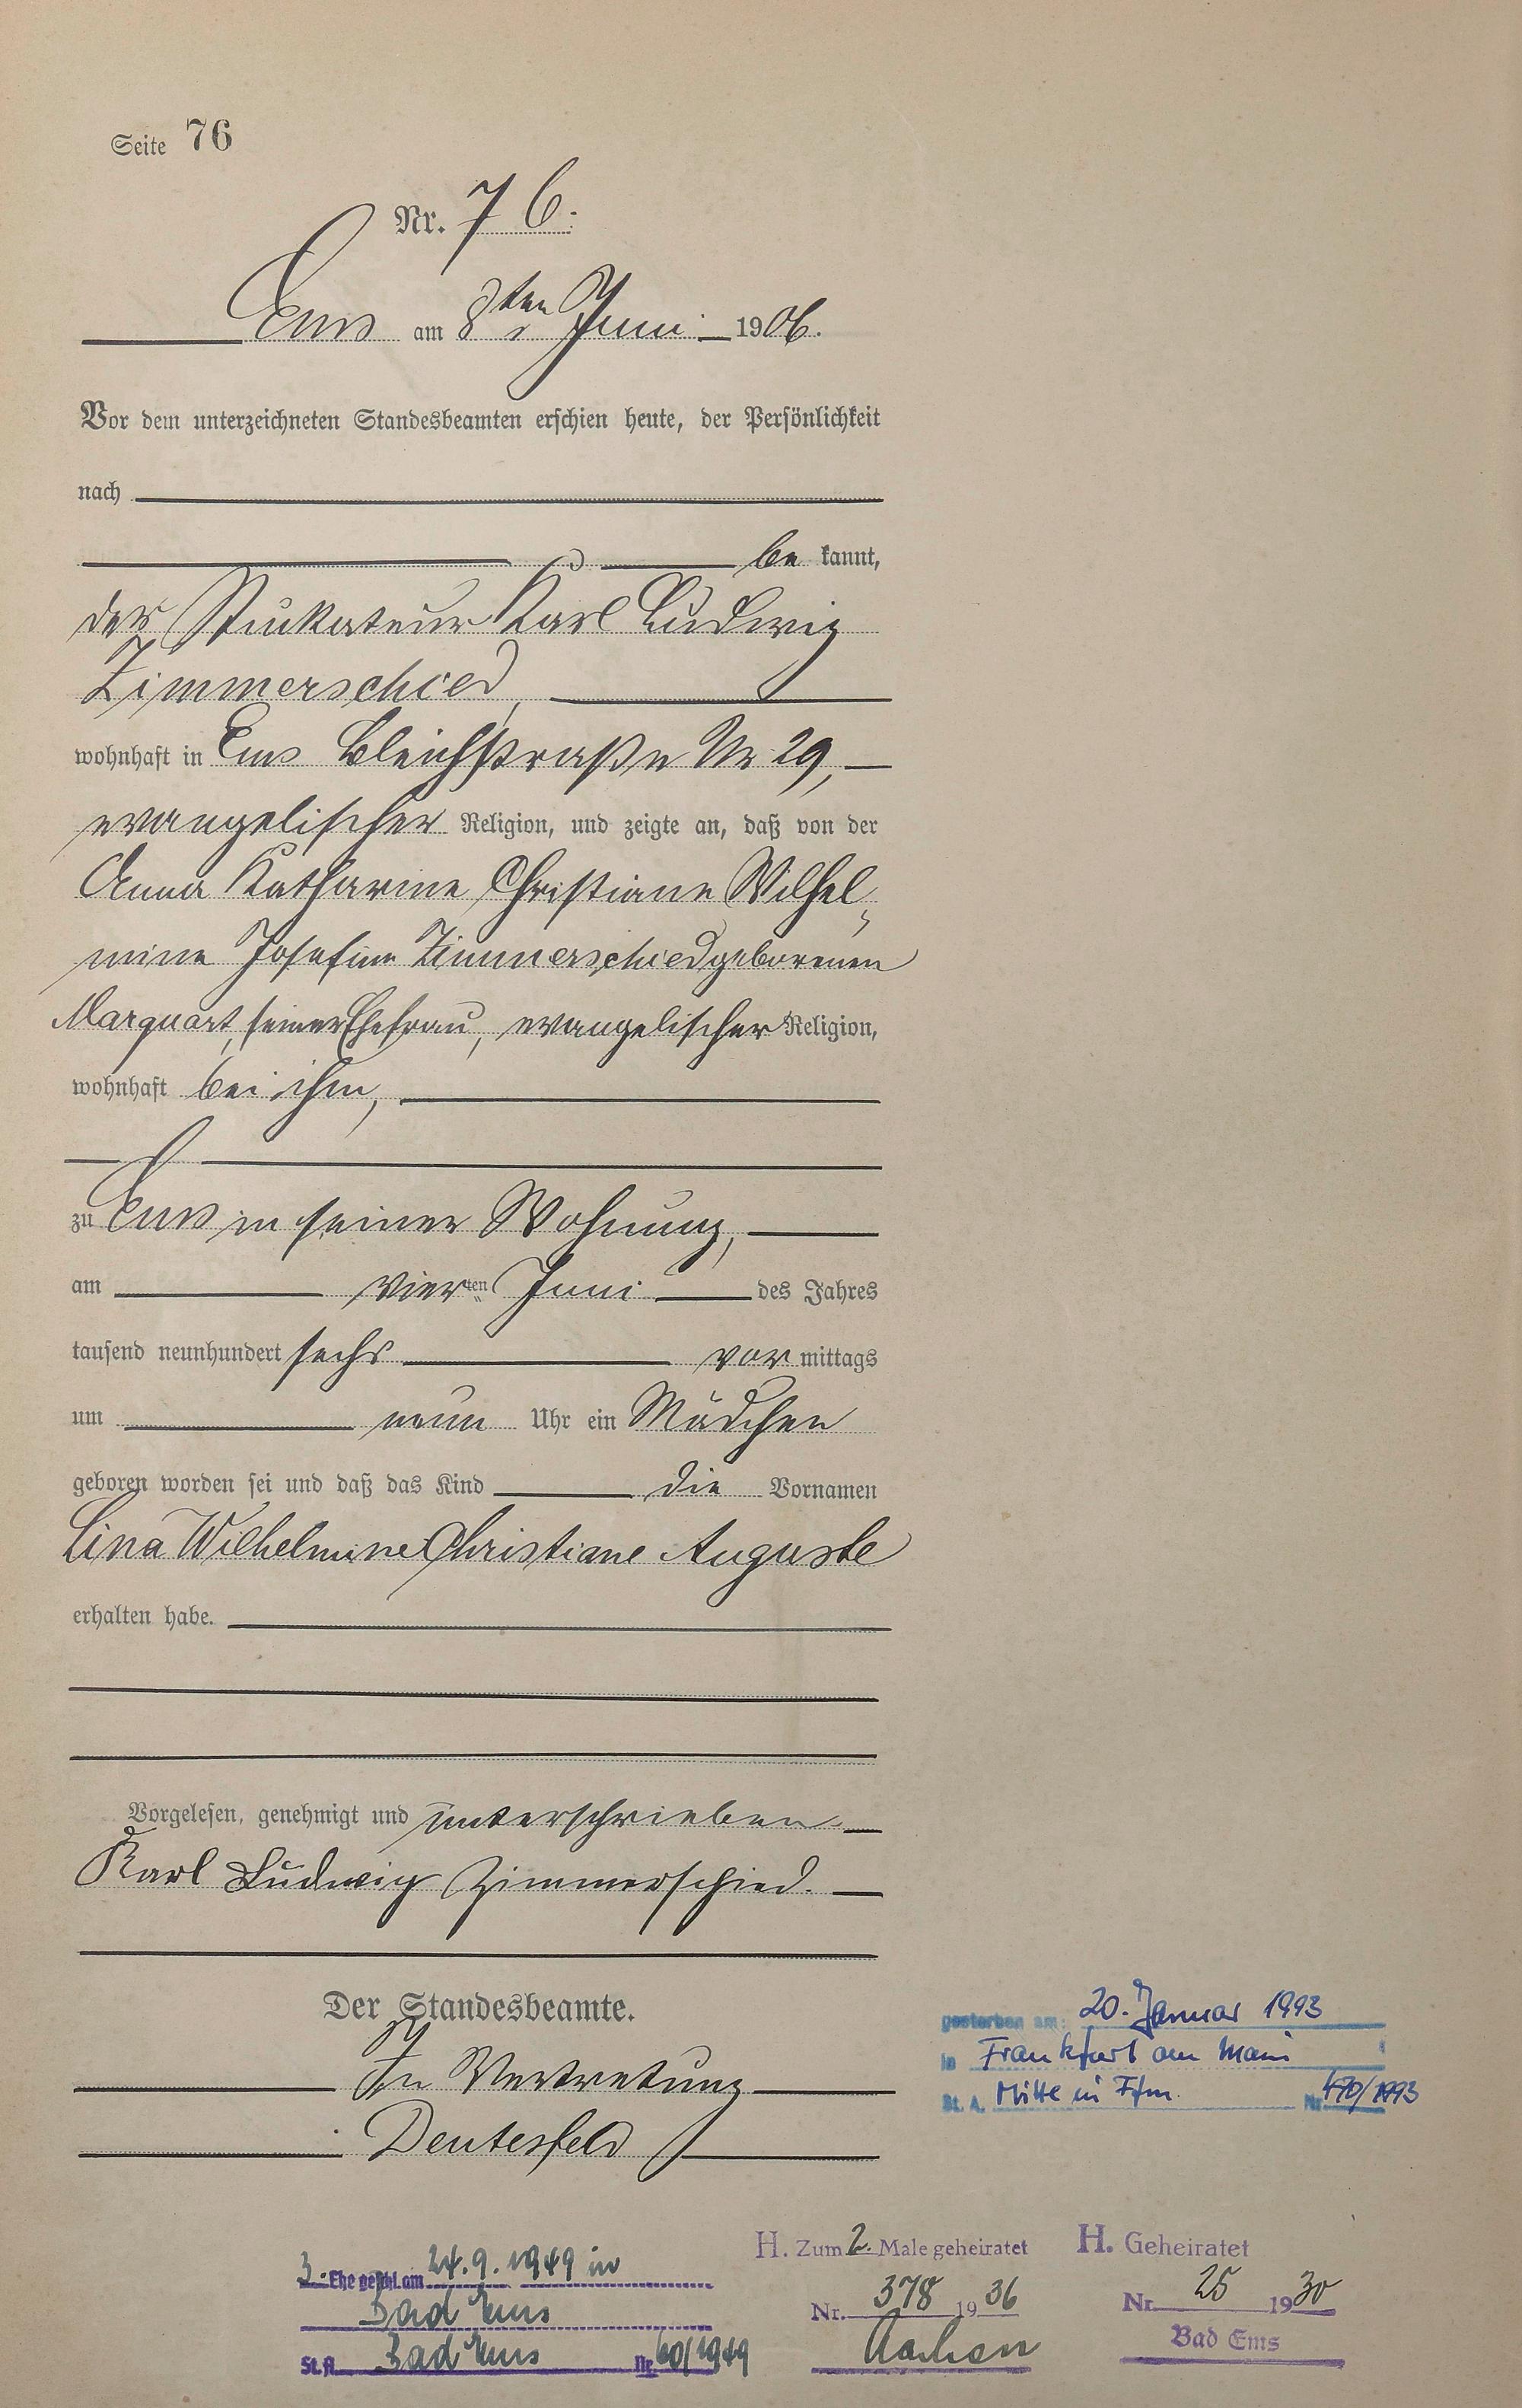 Seite 76
Nr. 76.
Ems am 8ten Juni 1906.
Vor dem unterzeichneten Standesbeamten erschien heute, der Persönlichkeit
nach
be kannt,
der Stuckateur Karl Ludwig
Zimmerschied,
wohnhaft in Ems Bleichstraße Nr 29,
evangelischer Religion, und zeigte an, daß von der
Anna Katharine Christiane Wilhel-
mine Josefine Zimmerschied geborenen
Marquart, seiner Ehefrau, evangelischer Religion,
wohnhaft bei ihm,
zu Ems in seiner Wohnung,
am vierten Juni des Jahres
tausend neunhundert sechs vor mittags
um neun Uhr ein Mädchen
geboren worden sei und daß das Kind die Vornamen
Lina Wilhelmine Christiane Auguste
erhalten habe.
Vorgelesen, genehmigt und unterschrieben
Karl Ludwig Zimmerschied.
Der Standesbeamte.
In Vertretung
Deutesfeld
gestorben am: 20. Januar 1993
in Frankfurt am Main
St. A. Mitte in Ffm. Nr. /1993
3. Ehe geschl. am 24.9.1949 in
Bad Ems
St. A. Bad Ems Nr. 60/1949
H. Zum 2. Male geheiratet
Nr. 378 1936
Aachen
H. Geheiratet
Nr. 25 1930
Bad Ems